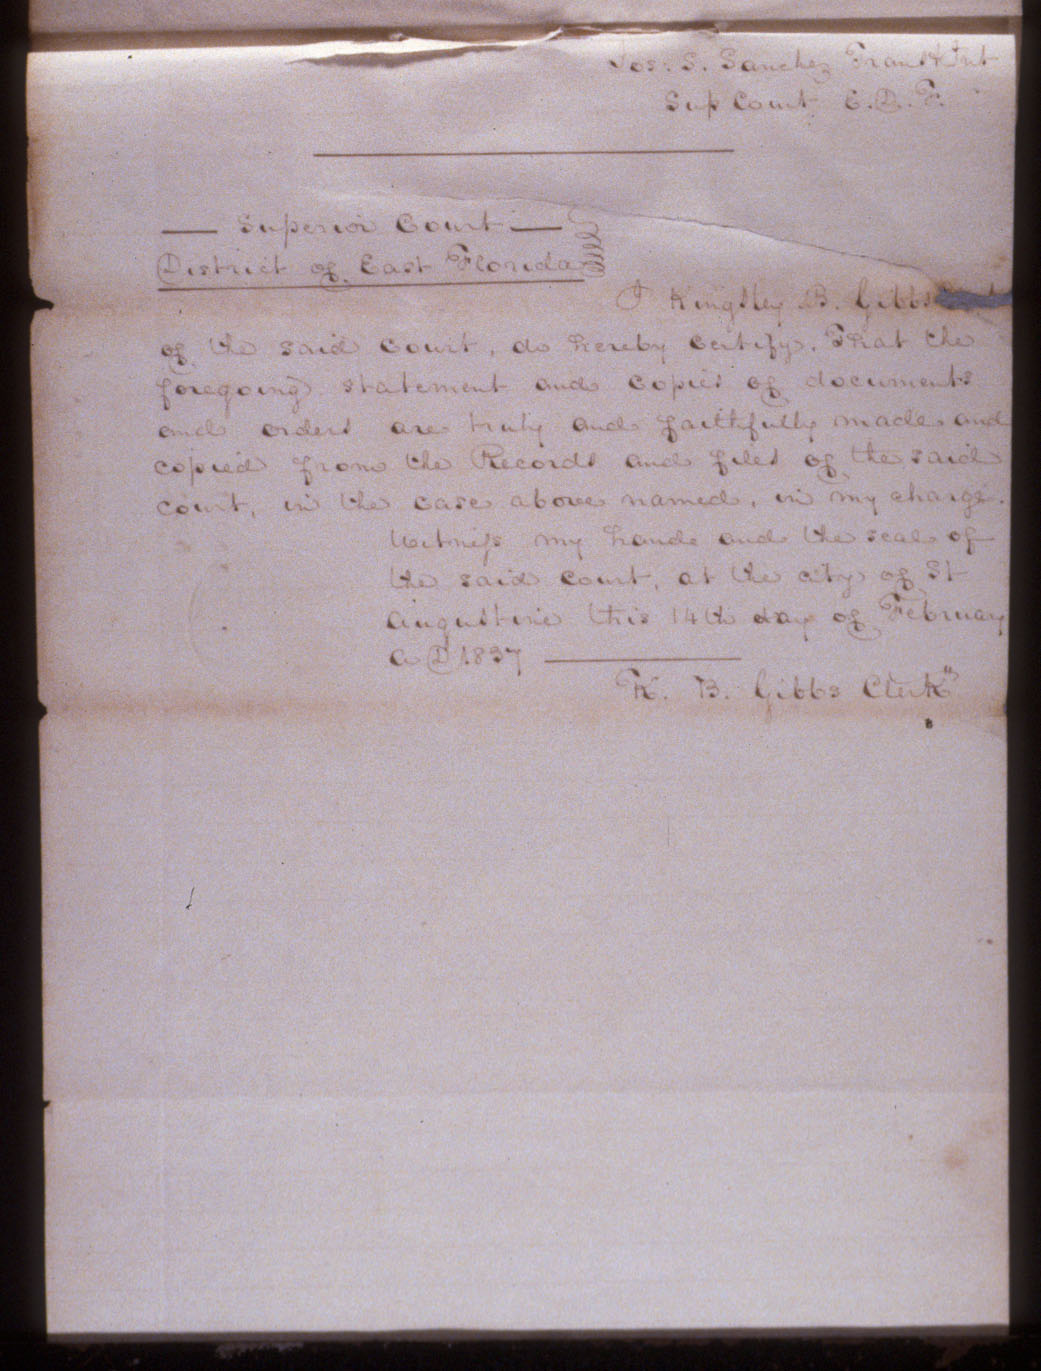 Jos: S. Sanchez Trans & Int
Sup Court E. D. F.
Superior Court
District of East Florida
I Kingsley B. Gibbs
of the said Court, do hereby certify, That the
foregoing statement and copies of documents
and orders are truly and faithfully made and
copied from the Records and files of the said
court, in the case above named, in my charge.
Witness my hand and the seal of
the said court, at the city of St
Augustine this 14th day of February
A D 1837
K. B. Gibbs Clerk